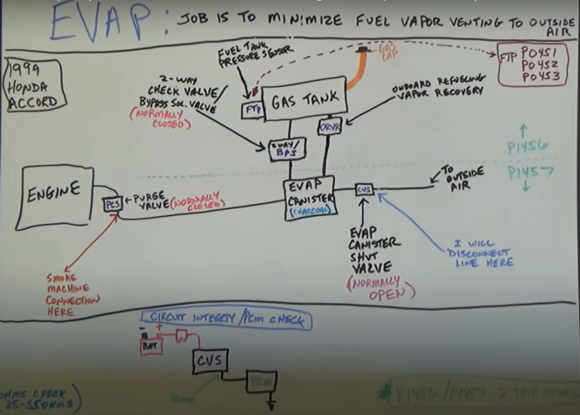 EVAP: JOB IS TO MINIMIZE FUEL VAPOR VENTING TO OUTSIDE
AIR
1999
HONDA
ACCORD
FUEL TANK
PRESSURE SENSOR
GAS
CAP
FTP
PO451
PO452
PO453
2-WAY
CHECK VALVE/
BYPASS SOL. VALVE
(NORMALLY
CLOSED)
FTP
GAS TANK
ORVR
ONBOARD REFUELING
VAPOR RECOVERY
2WAY/
BPS
P1456
P1457
ENGINE
PCS
PURGE
VALVE (NORMALLY
CLOSED)
EVAP
CANISTER
(CHARCOAL)
CVS
TO
OUTSIDE
AIR
EVAP
CANISTER
SHUT
VALVE
(NORMALLY
OPEN)
I WILL
DISCONNECT
LINE HERE
SMOKE
MACHINE
CONNECTION
HERE
CIRCUIT INTEGRITY/PCM CHECK
- +
BAT
CVS
PCM
OHMS CHECK
25-55OHMS)
* P1456/P1457-2 TRIP CODES